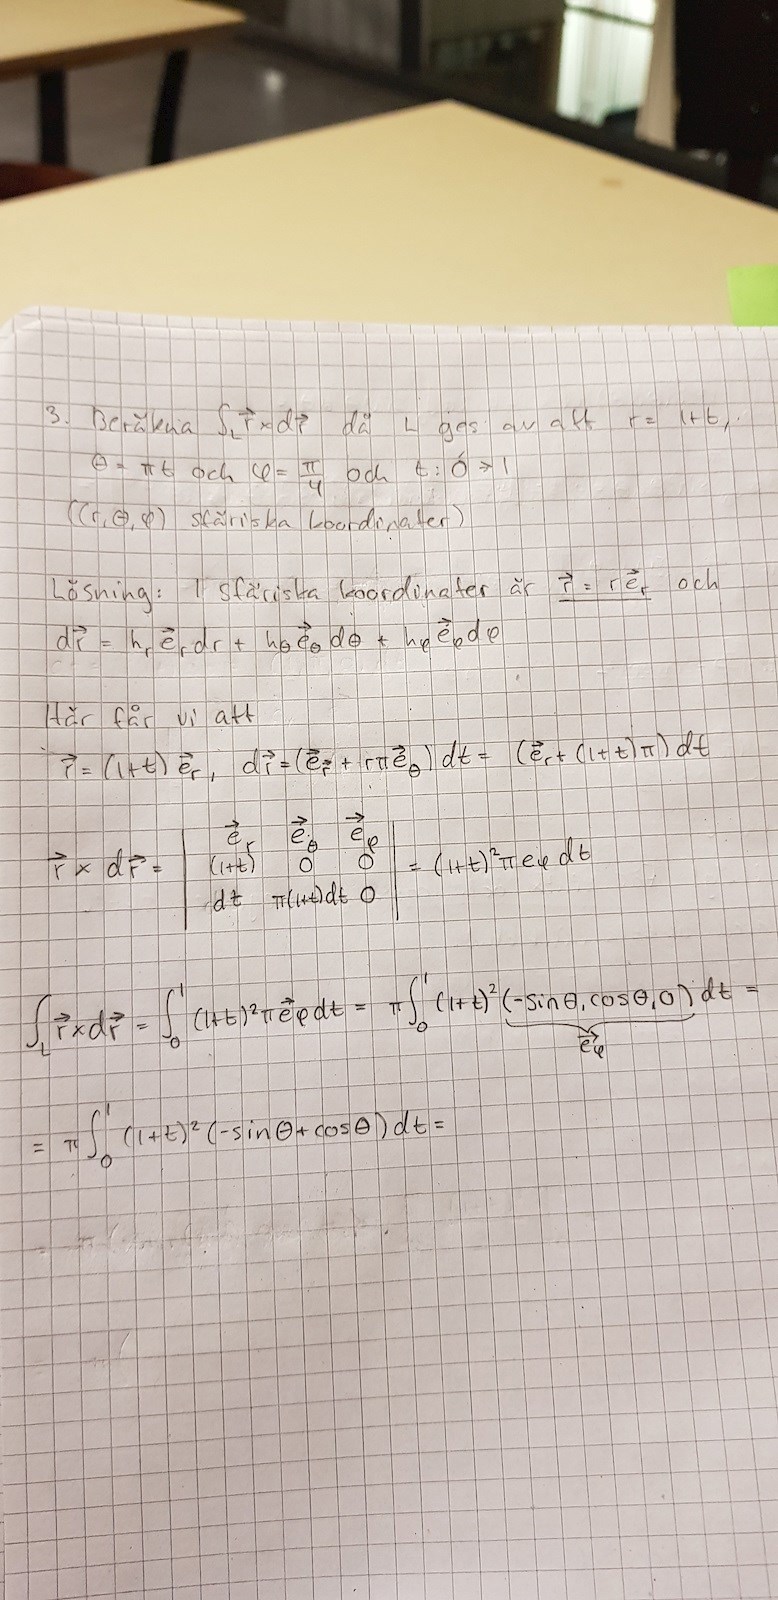 3. Beräkna ∫_L r⃗×dr⃗ då L ges av att r = 1+t,
θ = πt och φ = π/4 och t: 0→1
((r,θ,φ) sfäriska koordinater)
Lösning: I sfäriska koordinater är r⃗ = re⃗_r och
dr⃗ = h_r e⃗_r dr + h_θ e⃗_θ dθ + h_φ e⃗_φ dφ
Här får vi att
r⃗ = (1+t) e⃗_r, dr⃗ = (e⃗_r + rπe⃗_θ) dt = (e⃗_r + (1+t)π) dt
r⃗ × dr⃗ = | e⃗_r e⃗_θ e⃗_φ
(1+t) 0 0
dt π(1+t)dt 0 | = (1+t)²πe_φ dt
∫_L r⃗×dr⃗ = ∫₀¹ (1+t)²πe⃗_φ dt = π∫₀¹ (1+t)² (-sinθ, cosθ, 0) dt =
e⃗_φ
= π∫₀¹ (1+t)² (-sinθ + cosθ) dt =